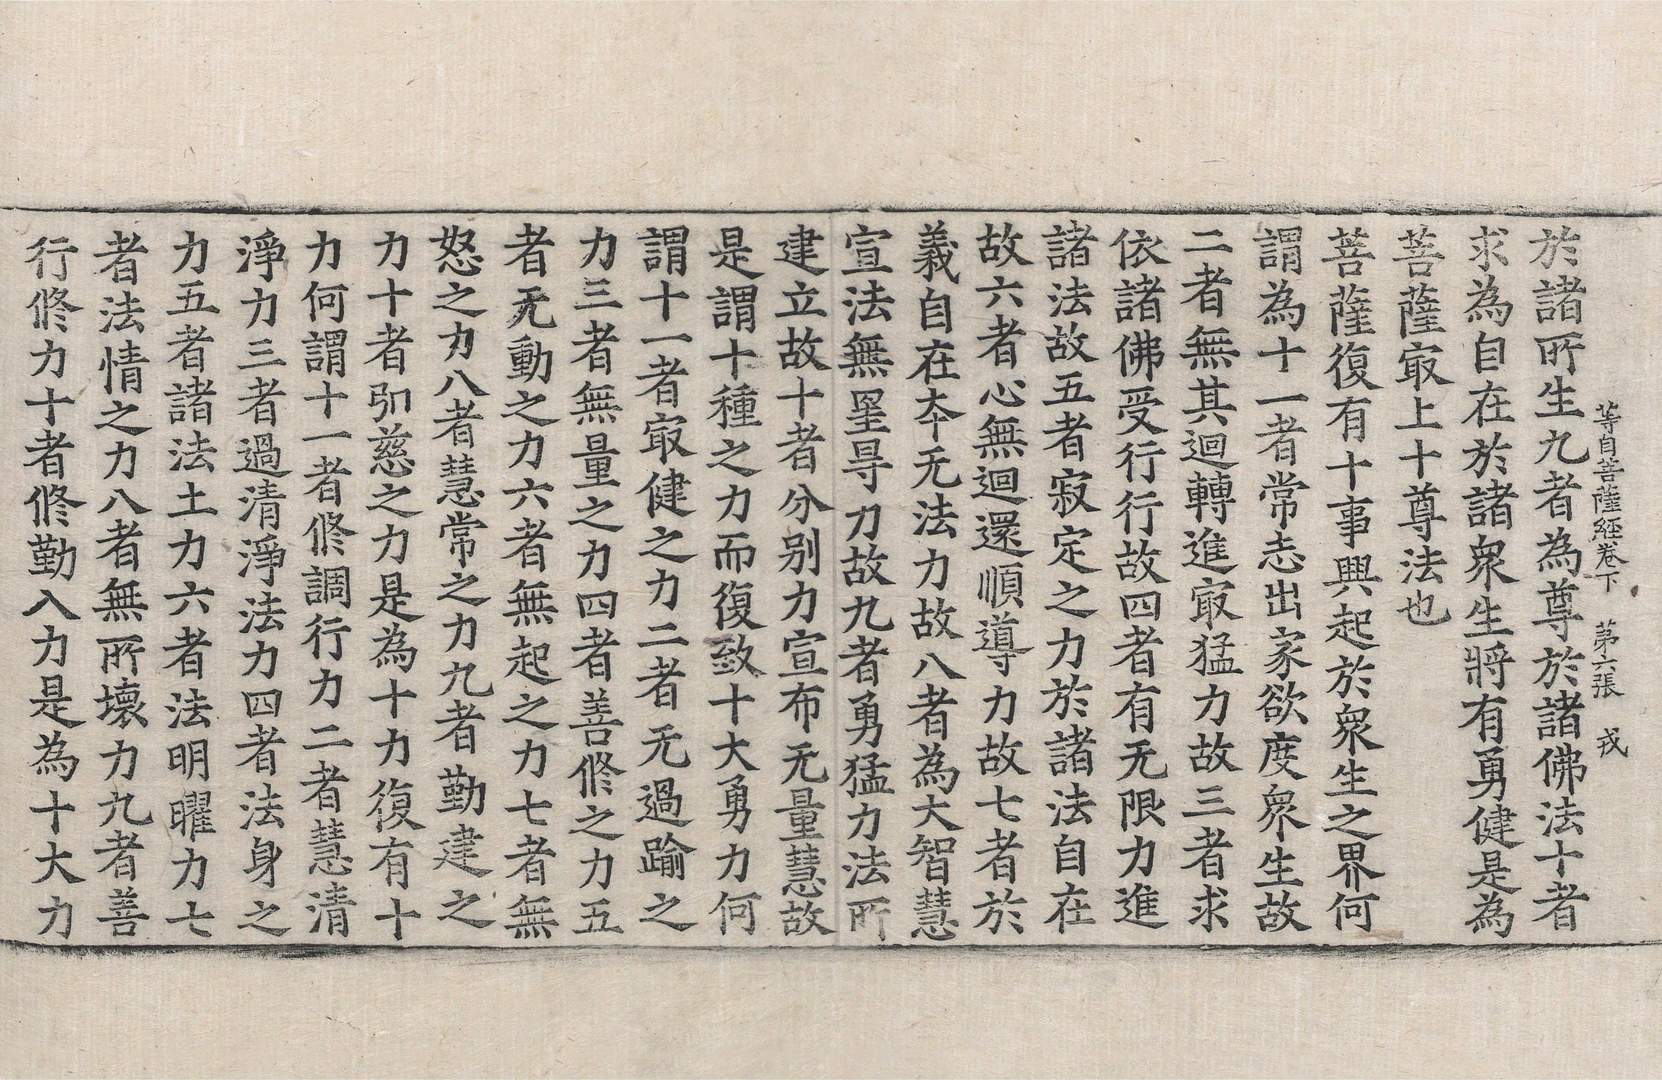 等自菩薩經卷下　第六張　戎
於諸所生九者為尊於諸佛法十者
求為自在於諸衆生將有勇健是為
菩薩㝡上十尊法也
菩薩復有十事興起於衆生之界何
謂為十一者常志出家欲度衆生故
二者無其迴轉進㝡猛力故三者求
依諸佛受行行故四者有无限力進
諸法故五者寂定之力於諸法自在
故六者心無迴還順導力故七者於
義自在夲无法力故八者為大智慧
宣法無罣㝵力故九者勇猛力法所
建立故十者分别力宣布无量慧故
是謂十種之力而復致十大勇力何
謂十一者㝡健之力二者无過踰之
力三者無量之力四者善修之力五
者无動之力六者無起之力七者無
怒之力八者慧常之力九者勤建之
力十者弘慈之力是為十力復有十
力何謂十一者修調行力二者慧清
淨力三者過清淨法力四者法身之
力五者諸法土力六者法明曜力七
者法情之力八者無所壞力九者善
行修力十者修勤八力是為十大力